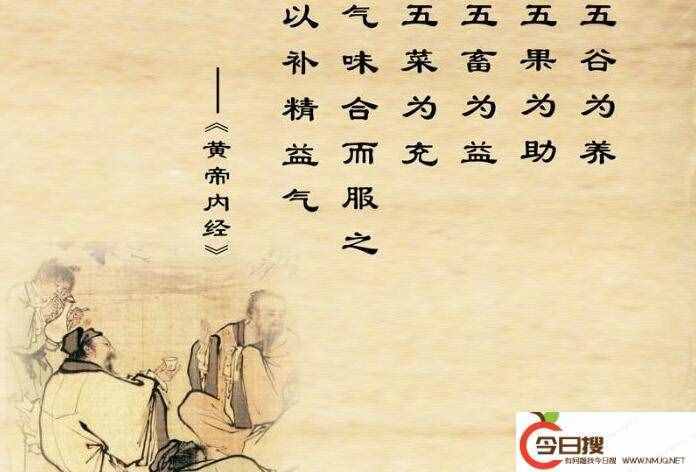 五谷为养
五果为助
五畜为益
五菜为充
气味合而服之
以补精益气
——《黄帝内经》
今日搜
有问题找今日搜 WWW.NMJQ.NET